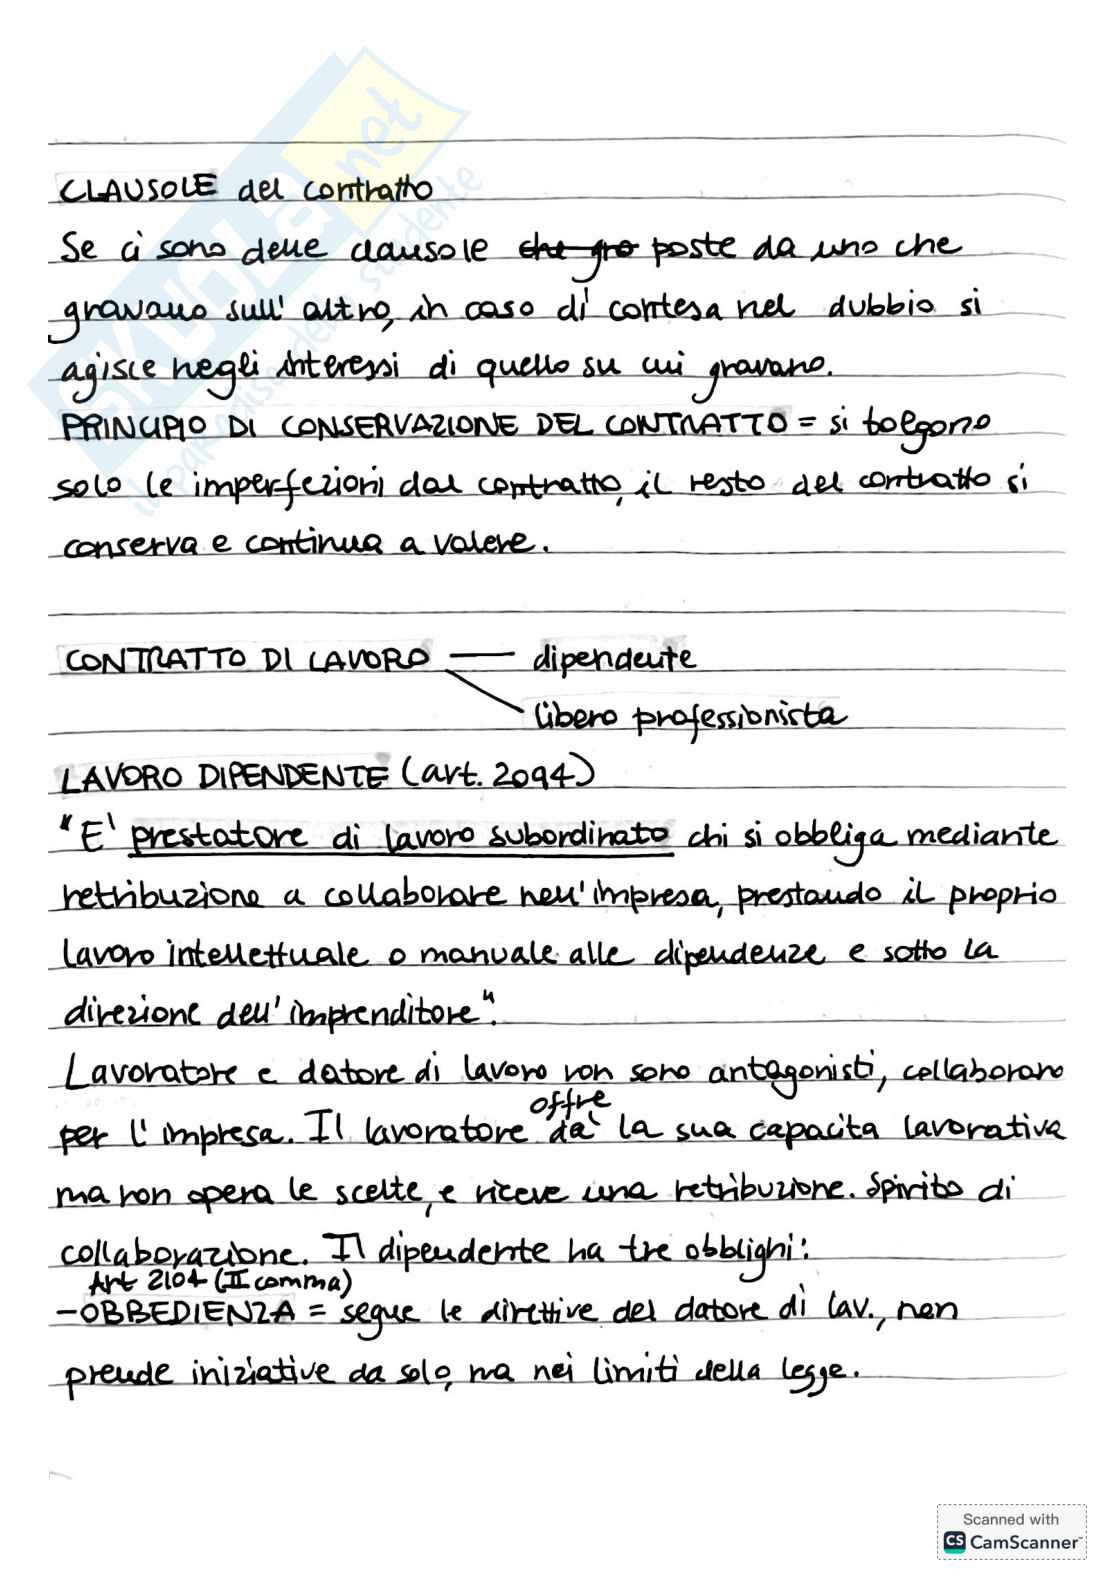 CLAUSOLE del contratto
Se ci sono delle clausole che gra poste da uno che
gravano sull'altro, in caso di contesa nel dubbio si
agisce negli interessi di quello su cui gravano.
PRINCIPIO DI CONSERVAZIONE DEL CONTRATTO = si tolgono
solo le imperfezioni dal contratto, il resto del contratto si
conserva e continua a valere.
CONTRATTO DI LAVORO — dipendente
libero professionista
LAVORO DIPENDENTE (art. 2094)
"E' prestatore di lavoro subordinato chi si obbliga mediante
retribuzione a collaborare nell'impresa, prestando il proprio
lavoro intellettuale o manuale alle dipendenze e sotto la
direzione dell'imprenditore".
Lavoratore e datore di lavoro non sono antagonisti, collaborano
offre
per l'impresa. Il lavoratore dà la sua capacità lavorativa
ma non opera le scelte, e riceve una retribuzione. Spirito di
collaborazione. Il dipendente ha tre obblighi:
Art 2104 (II comma)
- OBBEDIENZA = segue le direttive del datore di lav., non
prende iniziative da solo, ma nei limiti della legge.
SKUOLA.net
il paradiso dello studente
Scanned with
CS CamScanner™